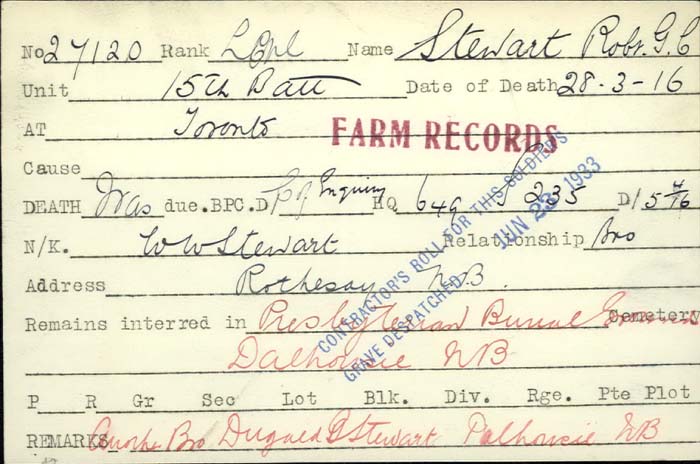 No 27120 Rank LCpl Name Stewart Robt. G. C
Unit 15th Batt Date of Death 28-3-16
AT Toronto FARM RECORDS
Cause
DEATH Was due.BPC.D of Enquiry HQ 649 S 235 D/ 5 4/16
N/K. W W Stewart Relationship Bro
Address Rothesay N.B.
CONTRACTOR'S ROLL FOR THIS SOLDIER'S
GRAVE DESPATCHED JUN 23 1933
Remains interred in Presbyterian Burial Cemetery
Dalhousie NB
P R Gr Sec Lot Blk. Div. Rge. Pte Plot
REMARKS Another Bro Dugald Stewart Dalhousie NB